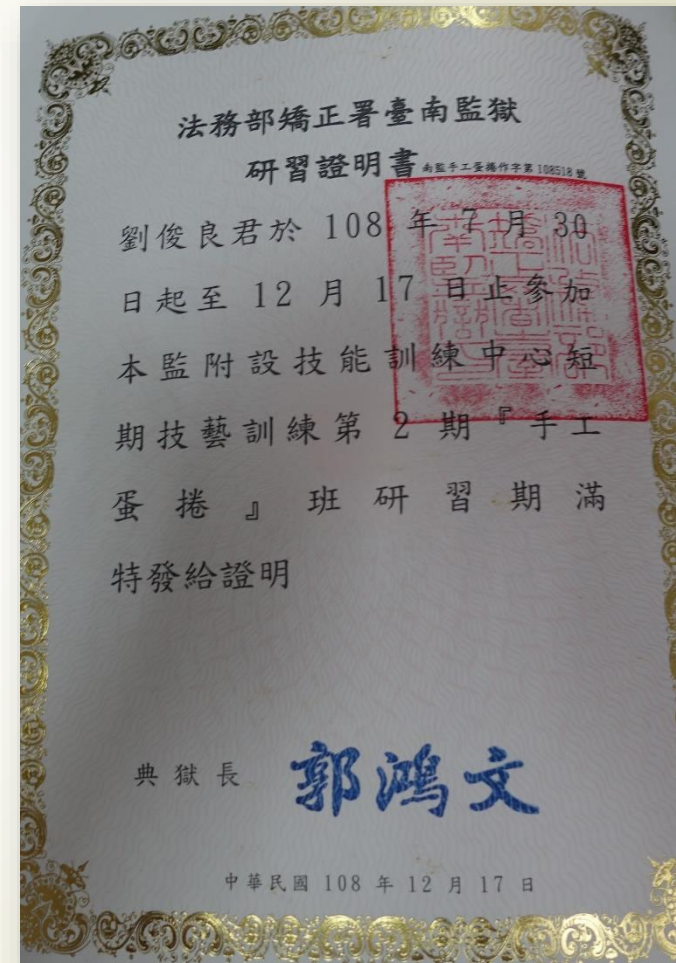 法務部矯正署臺南監獄
研習證明書 南監手工蛋捲作字第108518號
劉俊良君於 108 年 7 月 30
日起至 12 月 17 日止參加
本監附設技能訓練中心短
期技藝訓練第 2 期『手工
蛋捲』班研習期滿
特發給證明
典獄長 郭鴻文
中華民國 108 年 12 月 17 日